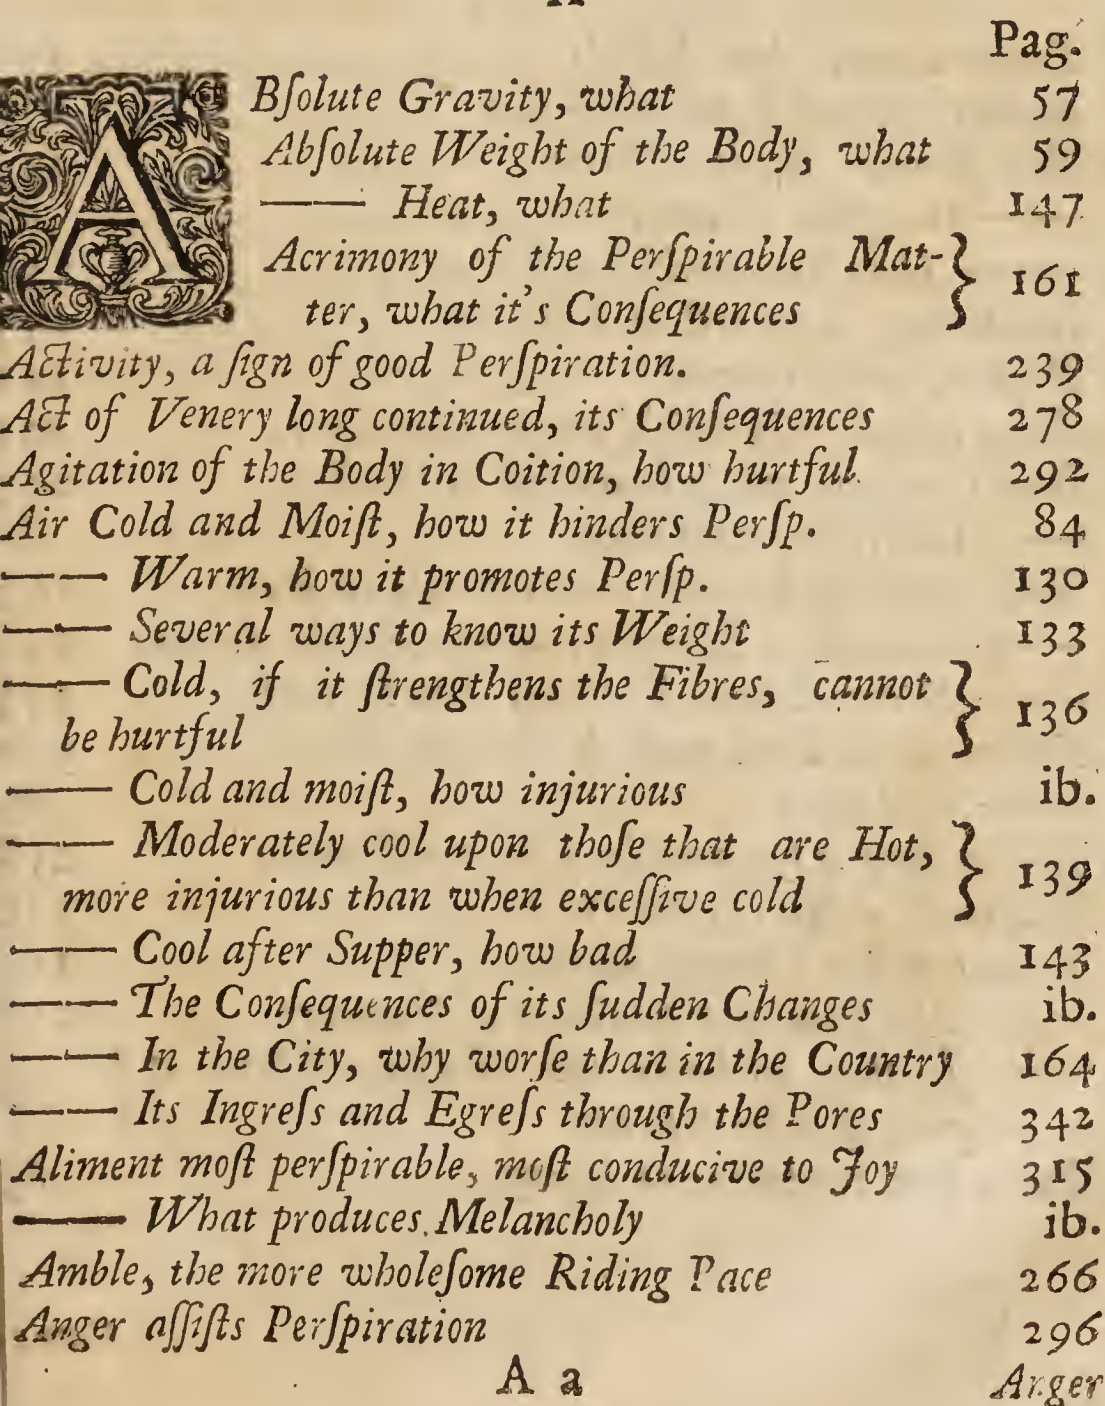 Pag.
ABſolute Gravity, what 57
Abſolute Weight of the Body, what 59
—— Heat, what 147
Acrimony of the Perſpirable Mat-
ter, what it's Conſequences } 161
Activity, a ſign of good Perſpiration. 239
Act of Venery long continued, its Conſequences 278
Agitation of the Body in Coition, how hurtful. 292
Air Cold and Moiſt, how it hinders Perſp. 84
—— Warm, how it promotes Perſp. 130
—— Several ways to know its Weight 133
—— Cold, if it ſtrengthens the Fibres, cannot
be hurtful } 136
—— Cold and moiſt, how injurious ib.
—— Moderately cool upon thoſe that are Hot,
more injurious than when exceſſive cold } 139
—— Cool after Supper, how bad 143
—— The Conſequences of its ſudden Changes ib.
—— In the City, why worſe than in the Country 164
—— Its Ingreſs and Egreſs through the Pores 342
Aliment moſt perſpirable, moſt conducive to Joy 315
—— What produces Melancholy ib.
Amble, the more wholeſome Riding Pace 266
Anger aſſiſts Perſpiration 296
A a Anger